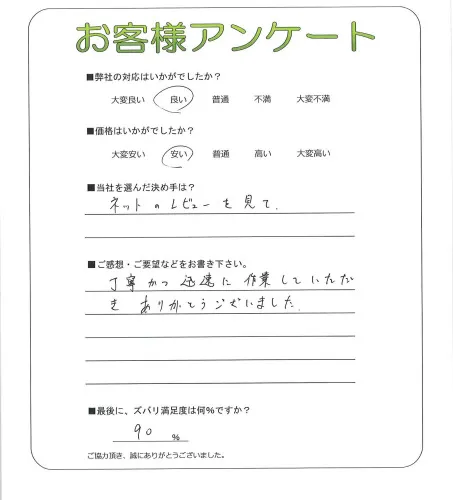 お客様アンケート
■弊社の対応はいかがでしたか？
大変良い 良い 普通 不満 大変不満
■価格はいかがでしたか？
大変安い 安い 普通 高い 大変高い
■当社を選んだ決め手は？
ネットのレビューを見て.
■ご感想・ご要望などをお書き下さい。
丁寧かつ迅速に作業していただ
きありがとうございました.
■最後に、ズバリ満足度は何%ですか？
90 %
ご協力頂き、誠にありがとうございました。